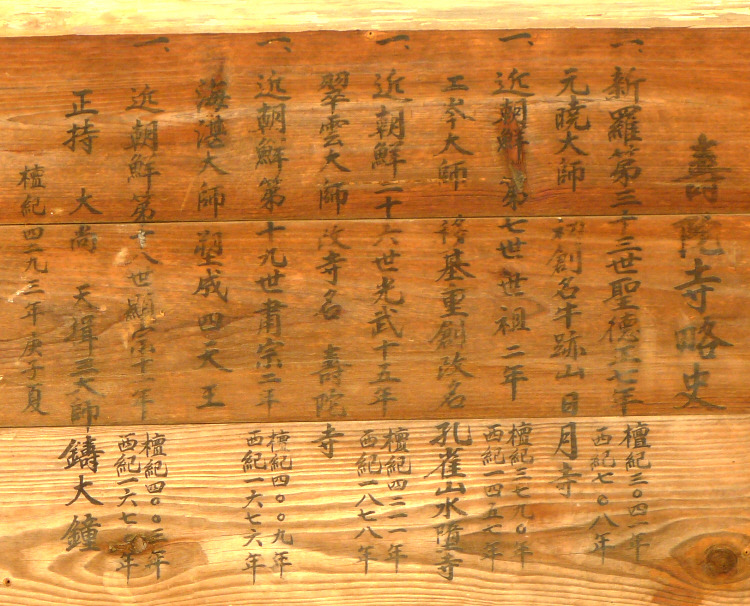 壽陀寺略史
一、新羅第三十三世聖德王七年
檀紀三〇四一年
西紀七〇八年
元曉大師 初創名牛跡山日月寺
一、近朝鮮第七世世祖二年
檀紀三七九〇年
西紀一四五七年
工岑大師 移基重創改名 孔雀山水墮寺
一、近朝鮮二十六世光武十五年
檀紀四二一一年
西紀一八七八年
翠雲大師 改寺名 壽陀寺
一、近朝鮮第十九世肅宗二年
檀紀四〇〇九年
西紀一六七六年
海湛大師 塑成四天王
一、近朝鮮第十八世顯宗十一年
檀紀四〇〇三年
西紀一六七〇年
正持 大尚 天 大師 鑄大鐘
檀紀四二九三年庚子夏